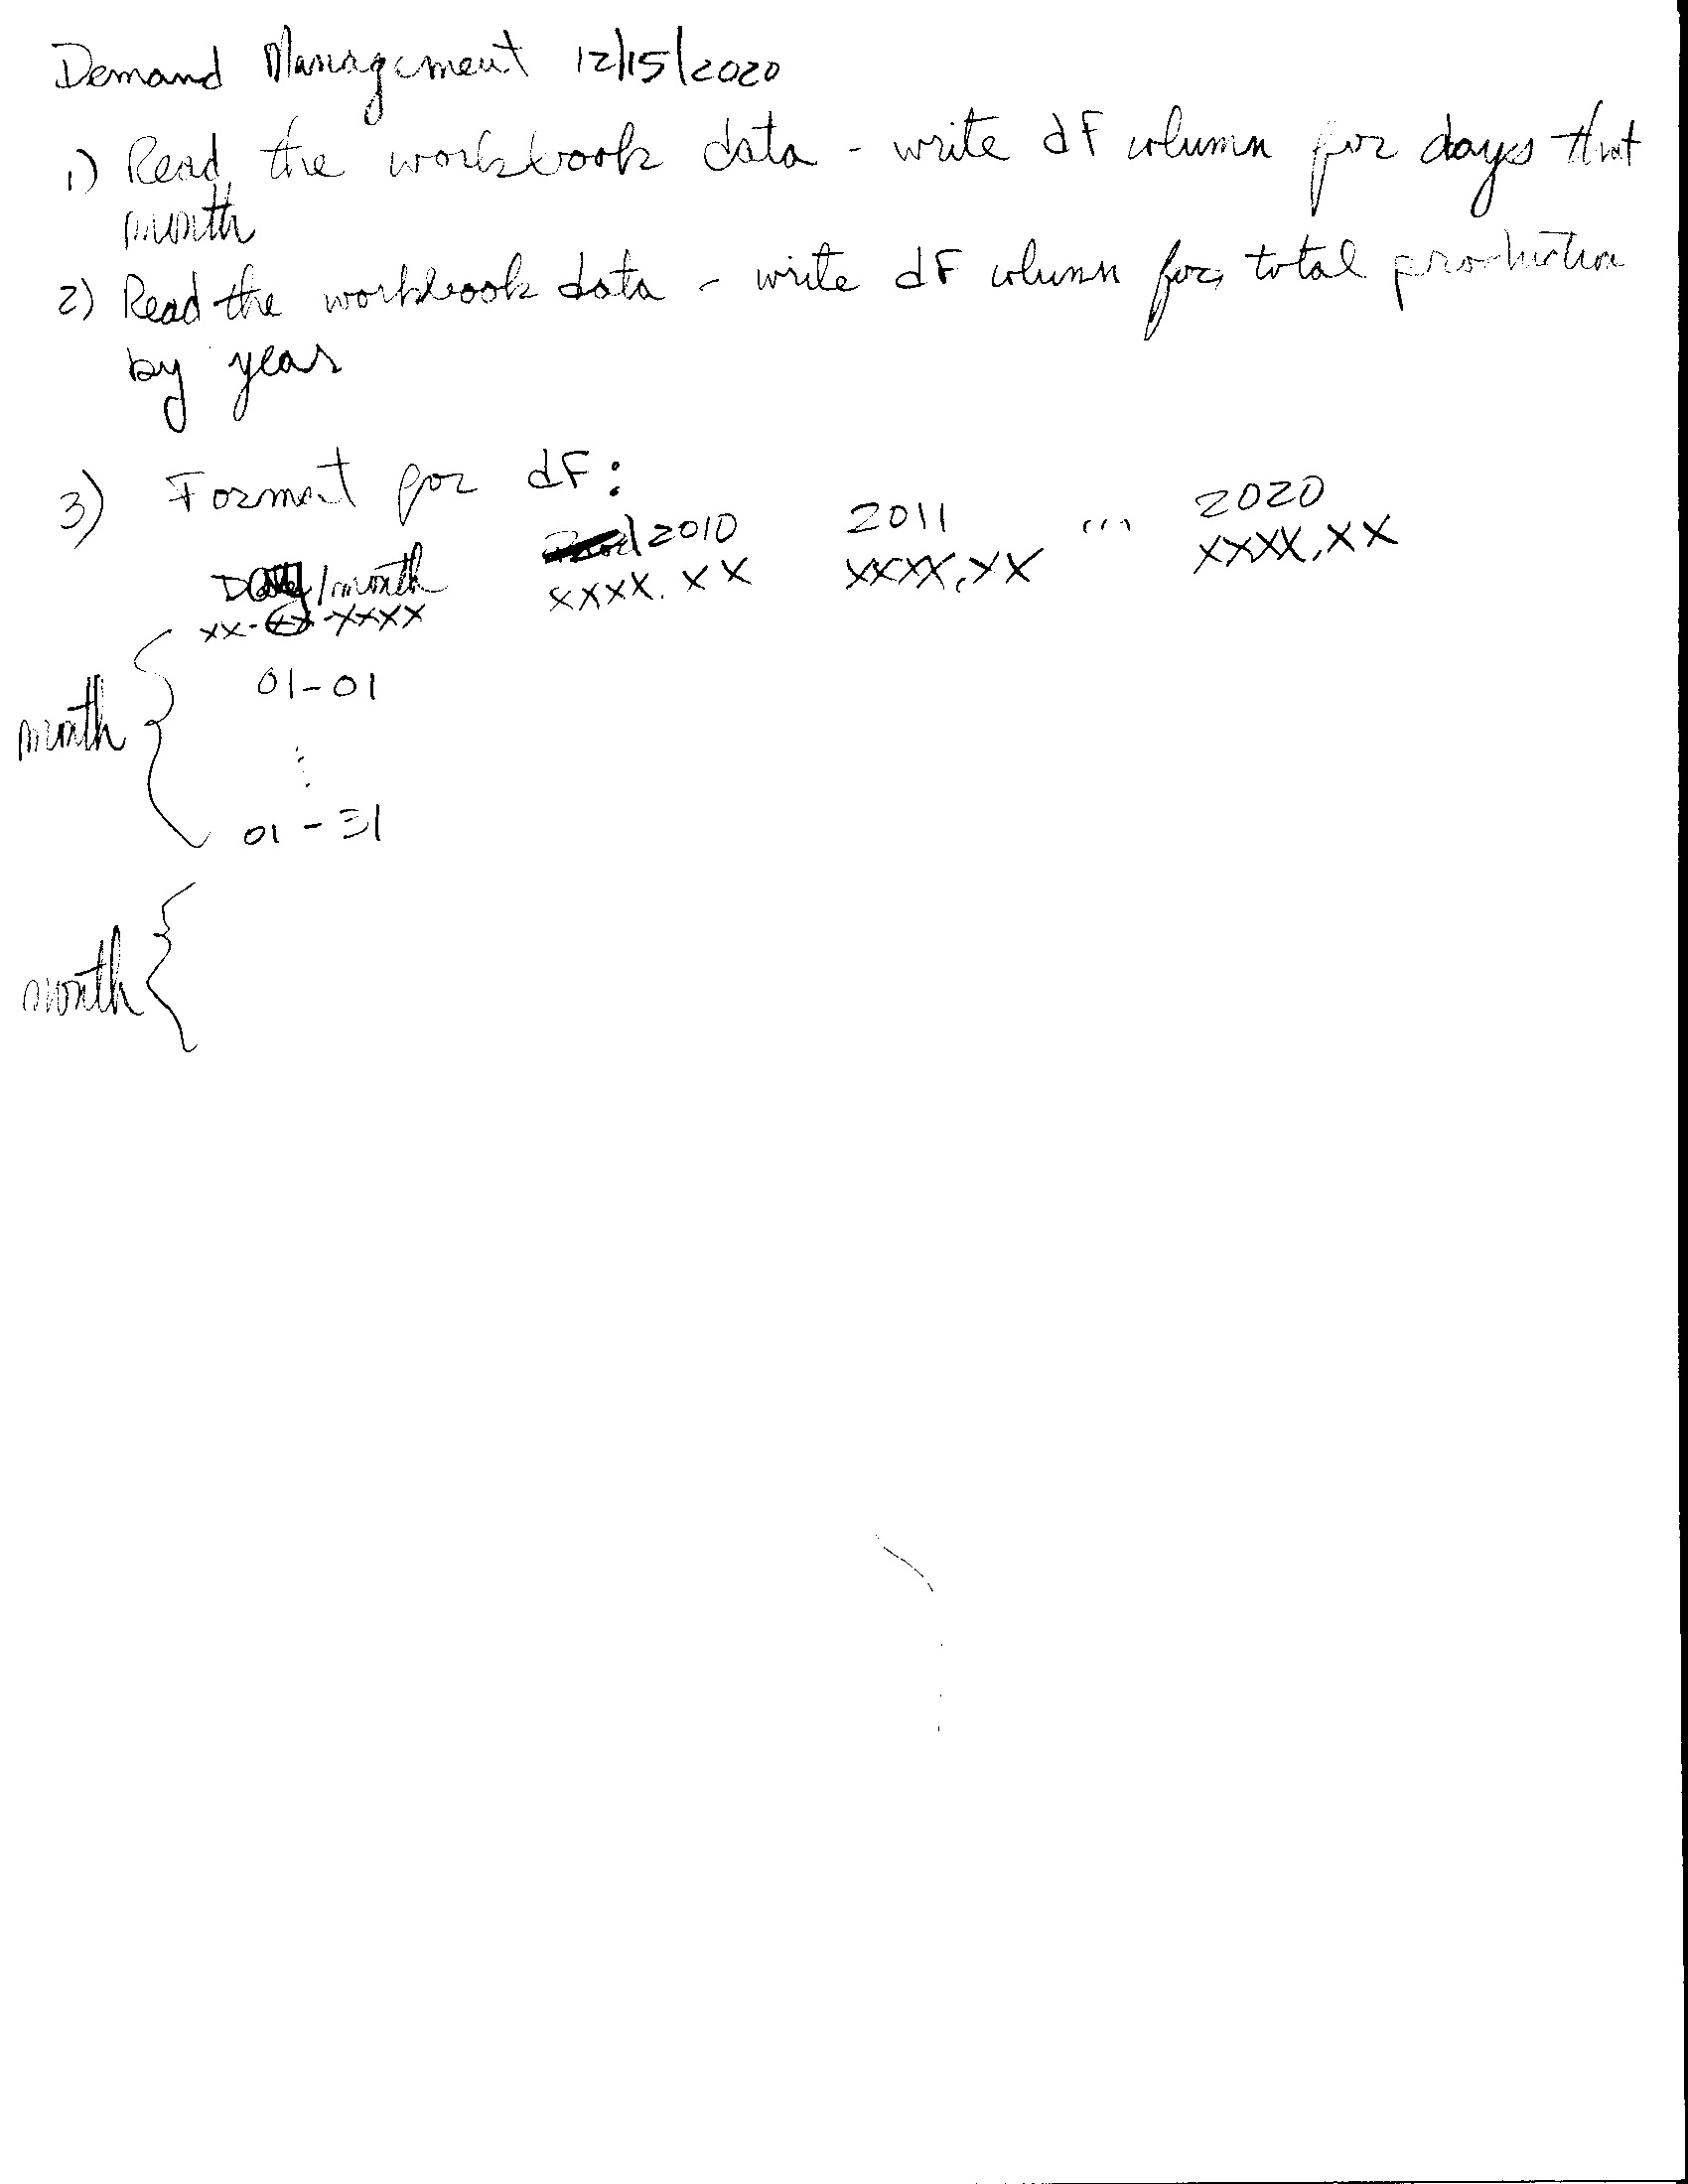 Demand Management 12/15/2020
1) Read the workbook data - write dF column for days that
month
2) Read the workbook data - write dF column for total production
by year
3) Format for dF:
2010 2011 ... 2020
Day/month xxxx.xx xxxx.xx xxxx.xx
xx-xx-xxxx
01-01
month
⋮
01-31
month